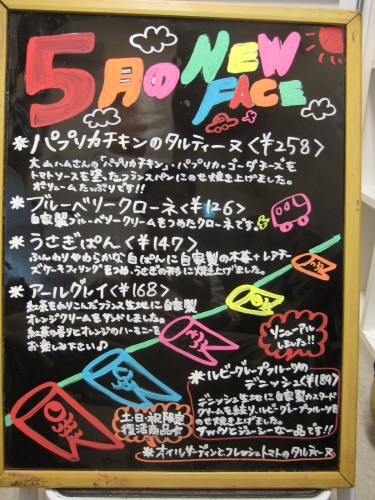 5月の NEW FACE
*パプリカチキンのタルティーヌ〈¥258〉
大山ハムさんの「パプリカチキン」・パプリカ・ゴーダチーズを
トマトソースを塗ったフランスパンにのせ焼き上げました。
ボリュームたっぷりです!!
*ブルーベリークローネ〈¥126〉
自家製ブルーベリークリームをつめたクローネです。
*うさぎぱん〈¥147〉
ふんわりやわらかな白ぱんに自家製の木苺+レアチー
ズケーキフィリングをつめ、うさぎの形に焼き上げました。
*アールグレイ〈¥168〉
紅茶をねりこんだフランス生地に自家製
オレンジクリームをサンドしました。
紅茶の香りとオレンジのハーモニーを
お楽しみ下さい♪
リニューアル
しました!!
*ルビーグレープフルーツの
デニッシュ〈¥189〉
デニッシュ生地に自家製カスタード
クリームを絞り、ルビーグレープフルーツを
のせ焼き上げました。
サッパリとジューシーな一品です!!
土・日・祝限定
復活商品☆
*オイルサーディンとフレッシュトマトのタルティーヌ